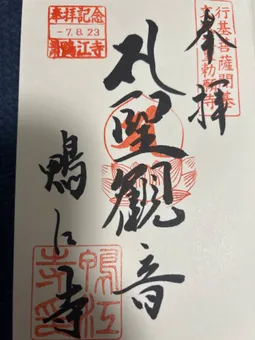 奉拝
行基菩薩開基
勅願寺
札聖観音
鴨江寺
奉拝記念
-7.8.23
鴨江寺
鴨江
寺印